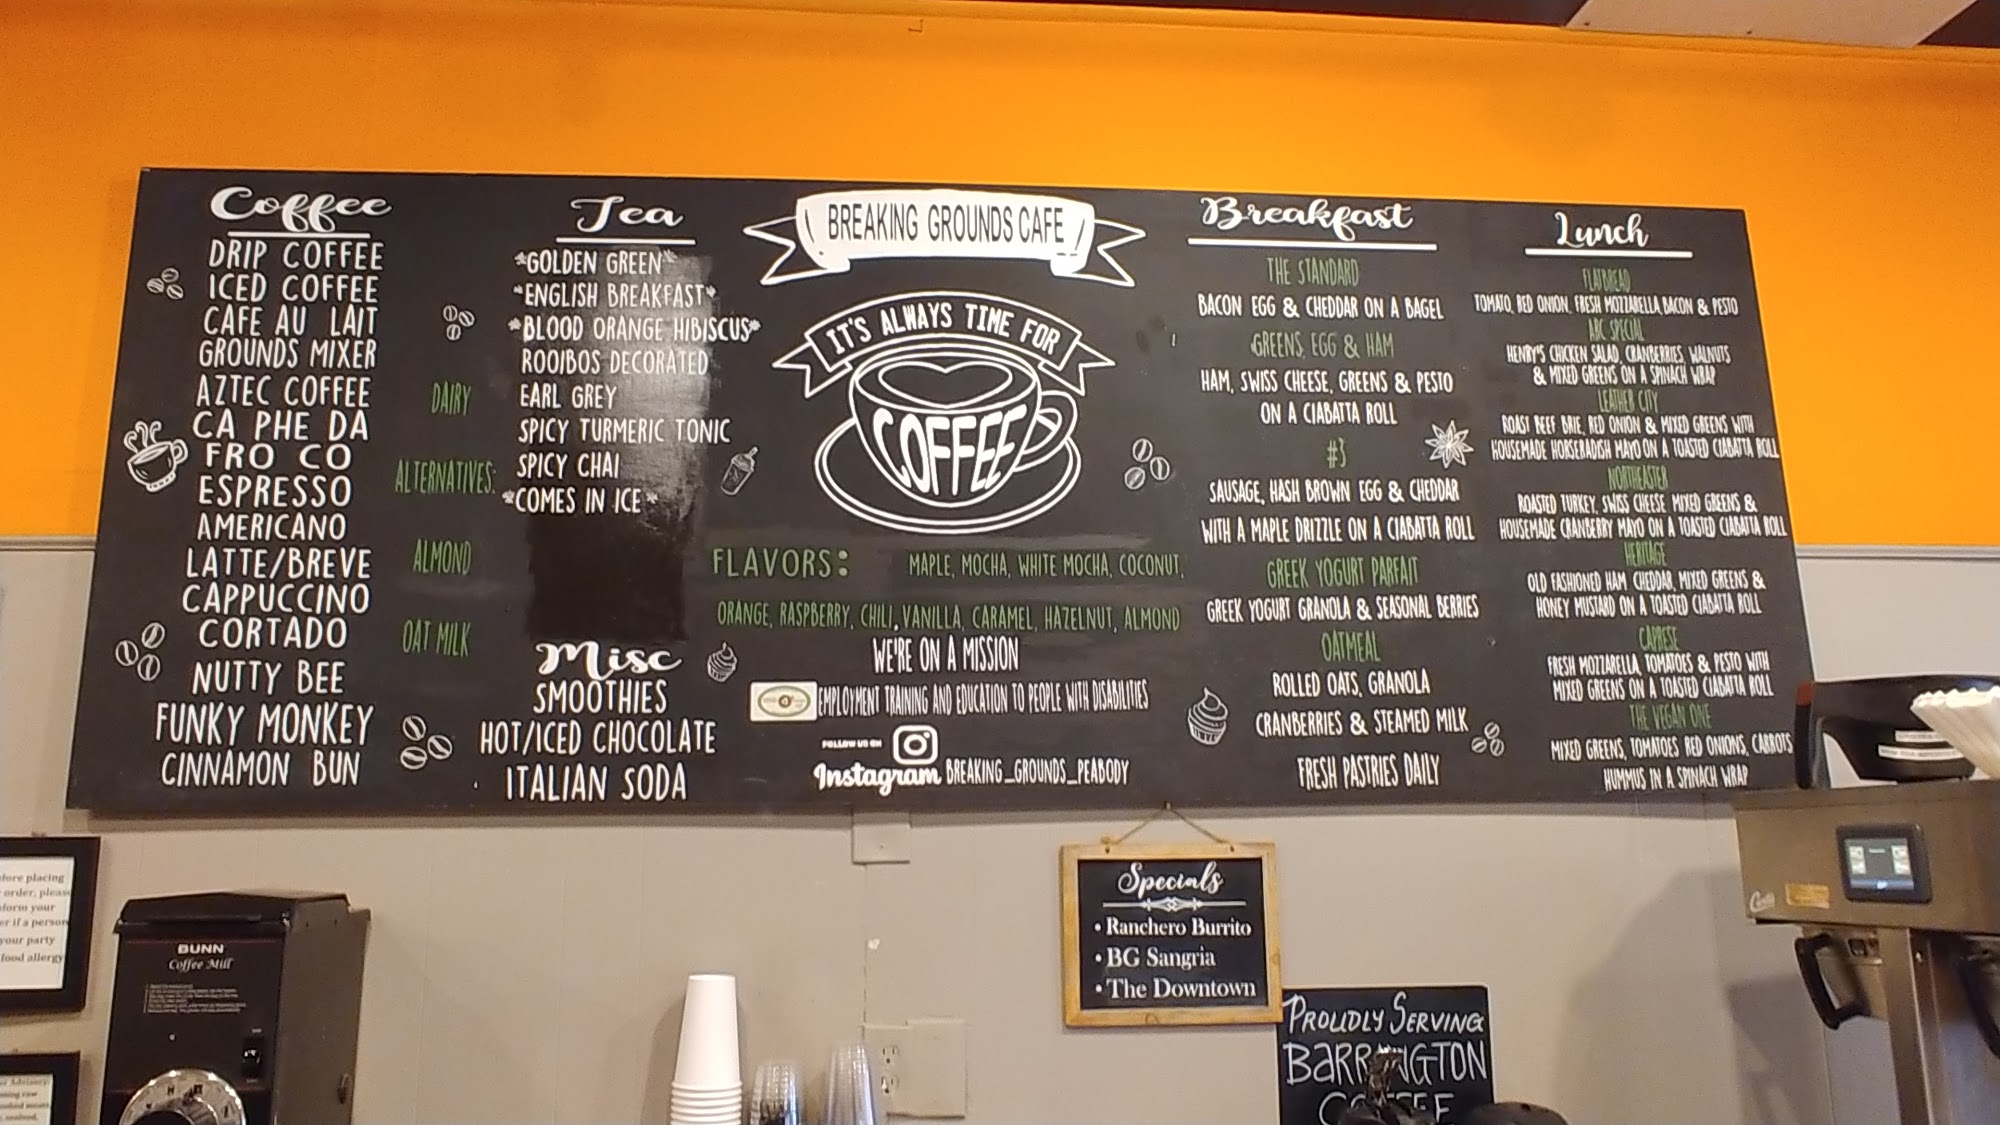 Coffee
DRIP COFFEE
ICED COFFEE
CAFE AU LAIT
GROUNDS MIXER
AZTEC COFFEE
CA PHE DA
FRO CO
ESPRESSO
AMERICANO
LATTE/BREVE
CAPPUCCINO
CORTADO
NUTTY BEE
FUNKY MONKEY
CINNAMON BUN
DAIRY
ALTERNATIVES:
ALMOND
OAT MILK
Tea
*GOLDEN GREEN*
*ENGLISH BREAKFAST*
*BLOOD ORANGE HIBISCUS*
ROOIBOS DECORATED
EARL GREY
SPICY TURMERIC TONIC
SPICY CHAI
*COMES IN ICE*
Misc
SMOOTHIES
HOT/ICED CHOCOLATE
ITALIAN SODA
BREAKING GROUNDS CAFE
IT'S ALWAYS TIME FOR
COFFEE
FLAVORS: MAPLE, MOCHA, WHITE MOCHA, COCONUT,
ORANGE, RASPBERRY, CHILI, VANILLA, CARAMEL, HAZELNUT, ALMOND
WE'RE ON A MISSION
EMPLOYMENT TRAINING AND EDUCATION TO PEOPLE WITH DISABILITIES
FOLLOW US ON
Instagram BREAKING_GROUNDS_PEABODY
Breakfast
THE STANDARD
BACON EGG & CHEDDAR ON A BAGEL
GREENS, EGG & HAM
HAM, SWISS CHEESE, GREENS & PESTO
ON A CIABATTA ROLL
#3
SAUSAGE, HASH BROWN EGG & CHEDDAR
WITH A MAPLE DRIZZLE ON A CIABATTA ROLL
GREEK YOGURT PARFAIT
GREEK YOGURT GRANOLA & SEASONAL BERRIES
OATMEAL
ROLLED OATS, GRANOLA
CRANBERRIES & STEAMED MILK
FRESH PASTRIES DAILY
Lunch
FLATBREAD
TOMATO, RED ONION, FRESH MOZZARELLA, BACON & PESTO
ARC SPECIAL
HENRY'S CHICKEN SALAD, CRANBERRIES, WALNUTS
& MIXED GREENS ON A SPINACH WRAP
LEATHER CITY
ROAST BEEF BRIE, RED ONION & MIXED GREENS WITH
HOUSEMADE HORSERADISH MAYO ON A TOASTED CIABATTA ROLL
NORTHEASTER
ROASTED TURKEY, SWISS CHEESE MIXED GREENS &
HOUSEMADE CRANBERRY MAYO ON A TOASTED CIABATTA ROLL
HERITAGE
OLD FASHIONED HAM CHEDDAR, MIXED GREENS &
HONEY MUSTARD ON A TOASTED CIABATTA ROLL
CAPRESE
FRESH MOZZARELLA, TOMATOES & PESTO WITH
MIXED GREENS ON A TOASTED CIABATTA ROLL
THE VEGAN ONE
MIXED GREENS, TOMATOES RED ONIONS, CARROTS
HUMMUS IN A SPINACH WRAP
Specials
• Ranchero Burrito
• BG Sangria
• The Downtown
PROUDLY SERVING
BARRINGTON
COFFEE
BUNN
Coffee Mill
placing
order, please
your
if a person
your party
food allergy